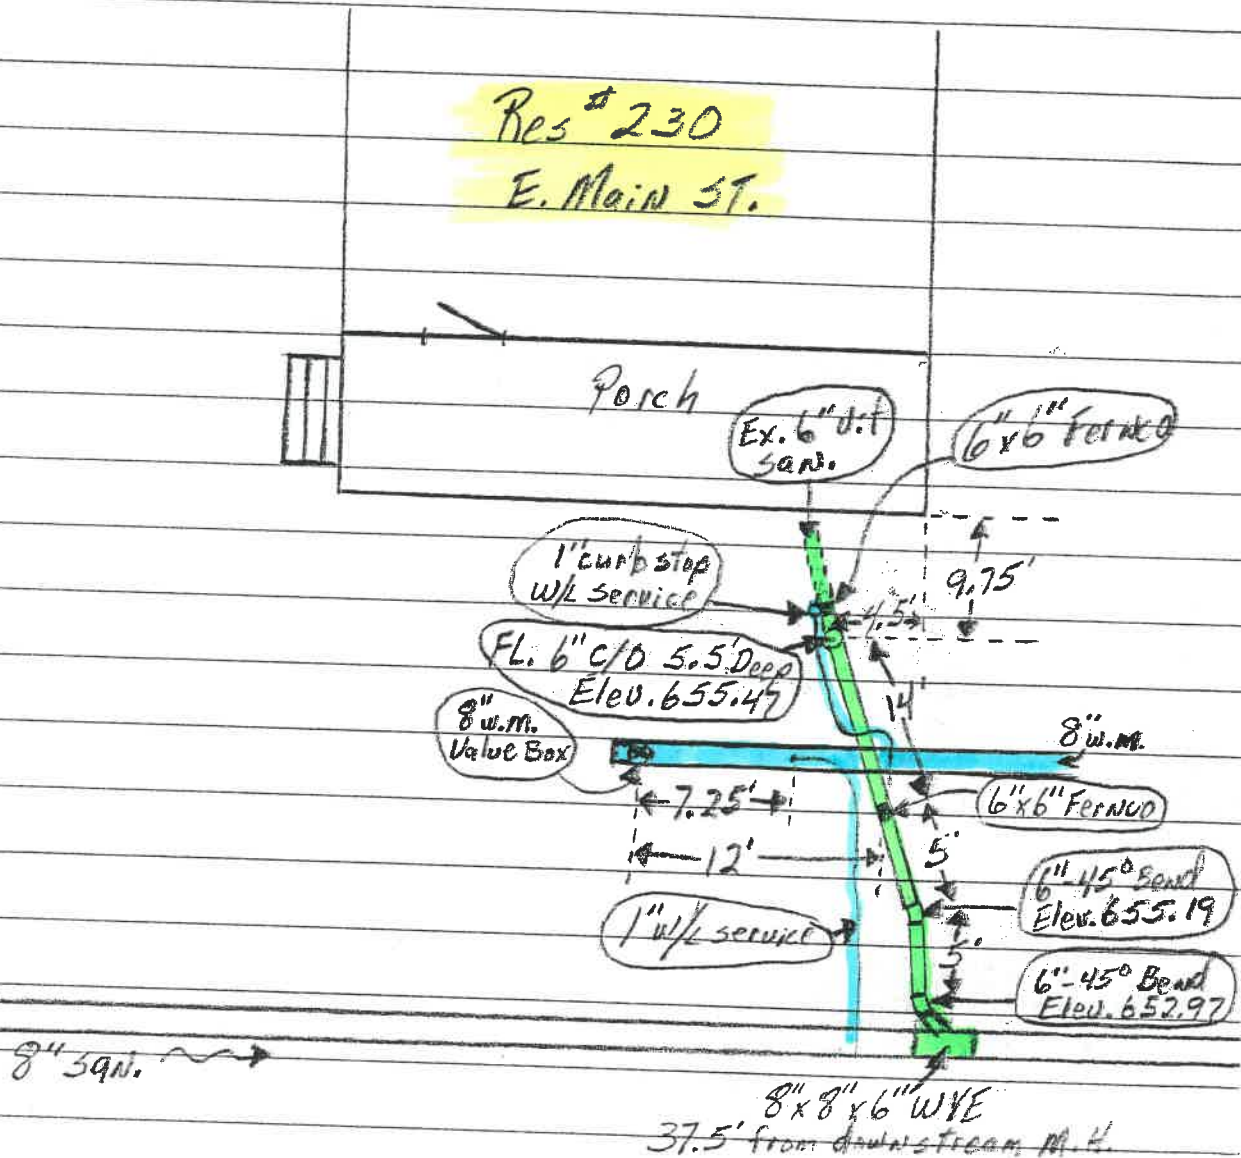 Res # 230
E. Main ST.
Porch
Ex. 6" V.T
SAN.
6"x6" Fernco
1" curb stop
W/L Service
9.75'
4.5'
FL. 6" C/O 5.5' Deep
Elev. 655.47
14'
8" w.m.
Value Box
8" w.m.
7.25'
6"x6" FERNCO
12'
5'
6"-45° Bend
Elev. 655.19
1" w/L service
5'
6"-45° Bend
Elev. 652.97
8" SAN.
8"x8"x6" WYE
37.5' from downstream M.H.